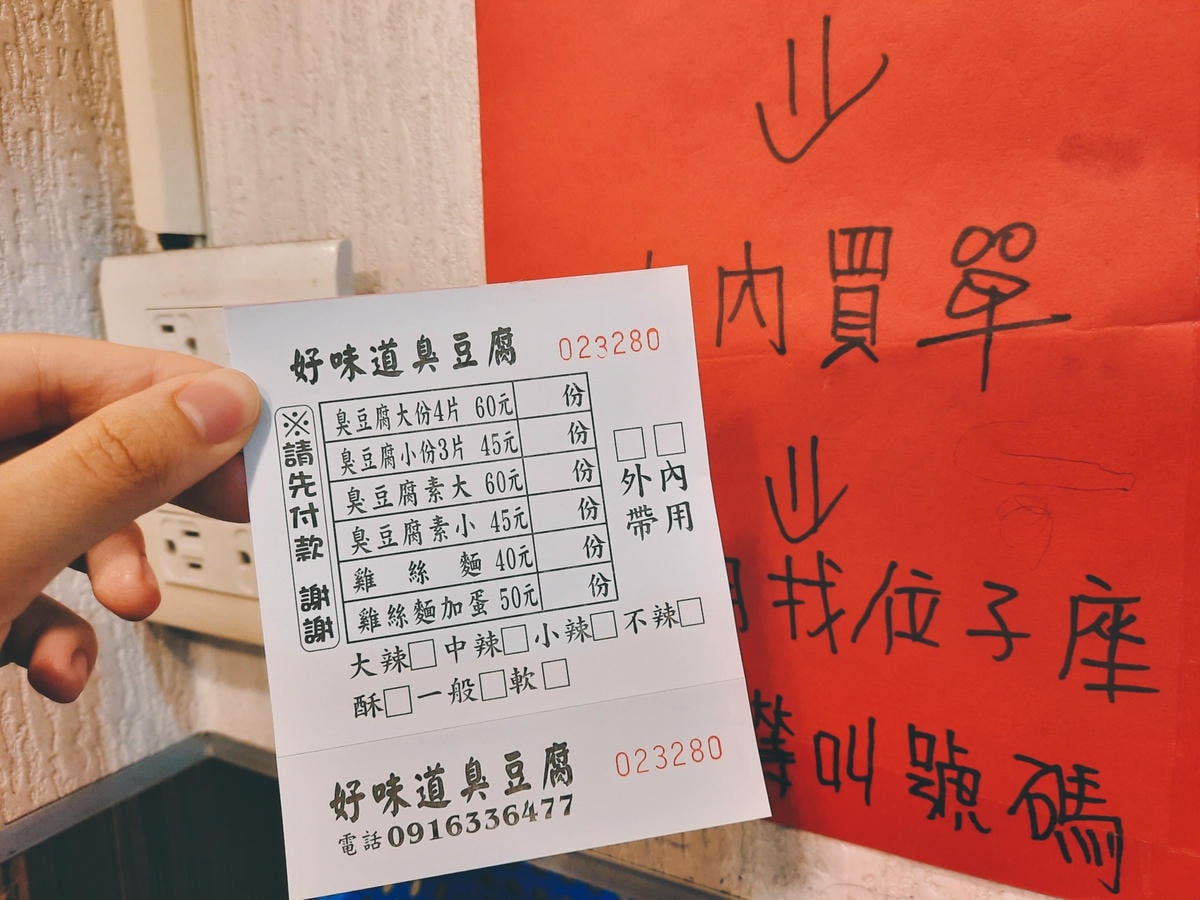 好味道臭豆腐 023280
※請先付款 謝謝
臭豆腐大份4片 60元 份
臭豆腐小份3片 45元 份
臭豆腐素大 60元 份
臭豆腐素小 45元 份
雞絲麵 40元 份
雞絲麵加蛋 50元 份
□外帶 □內用
大辣□中辣□小辣□不辣□
酥□一般□軟□
好味道臭豆腐 023280
電話0916336477
內買單
找位子座
叫號碼